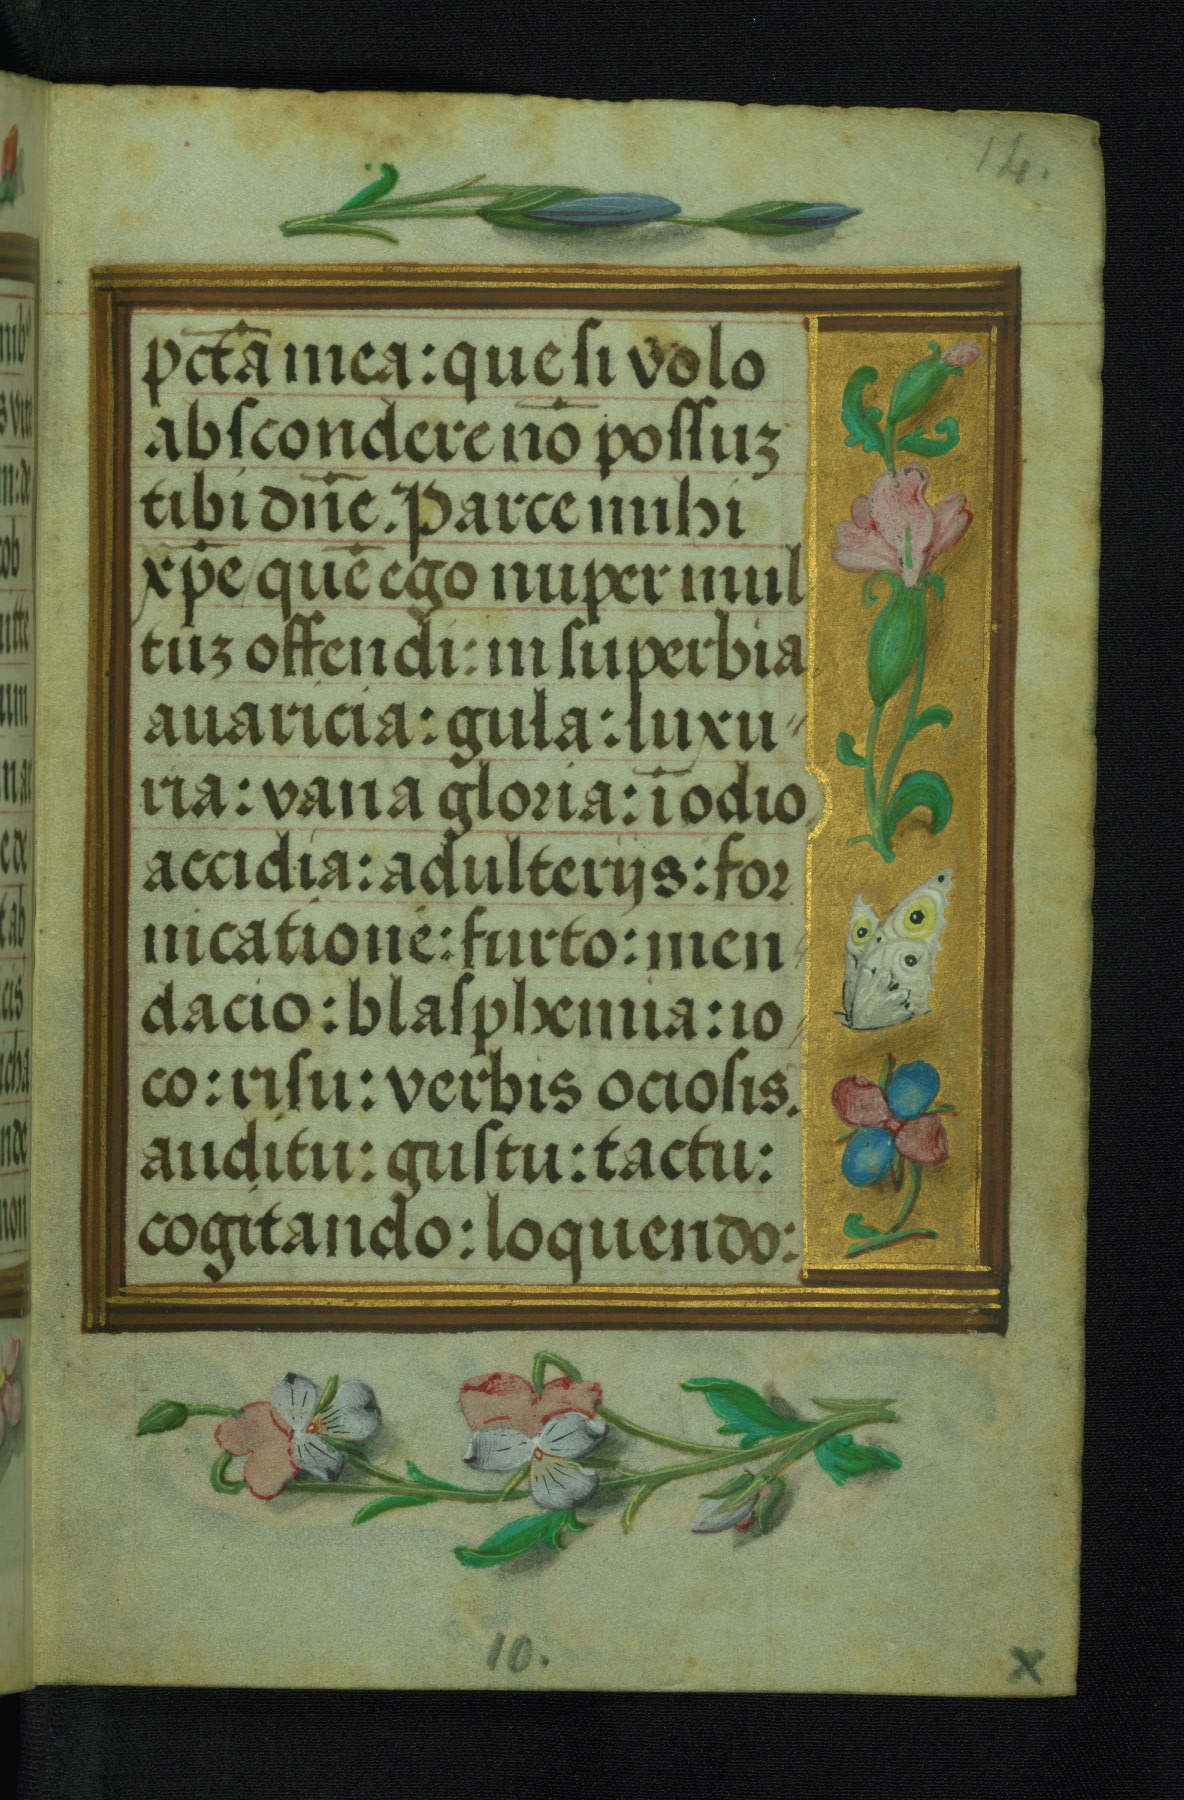 14.
pctā mea: que si volo
abscondere nō possuꝫ
tibi dn̄e. Parce michi
xp̄e quē ego nuper mul
tuꝫ offendi: in superbia
auaricia: gula: luxu-
ria: vana gloria: ī odio
accidia: adulterijs: for
nicatione: furto: men
dacio: blasphemia: io
co: risu: verbis ociosis.
auditu: gustu: tactu:
cogitando: loquendo:
10.
x